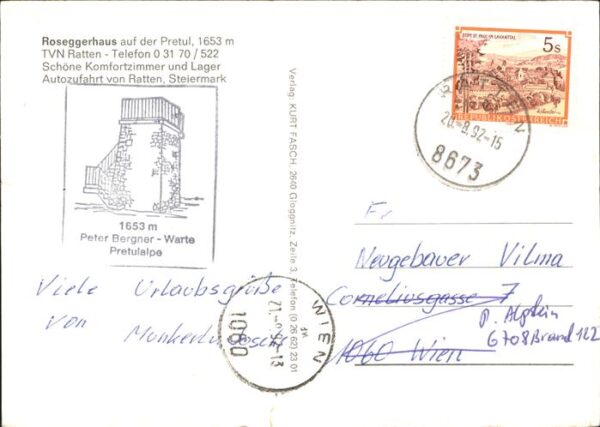 Roseggerhaus auf der Pretul, 1653 m
TVN Ratten - Telefon 0 31 70 / 522
Schöne Komfortzimmer und Lager
Autozufahrt von Ratten, Steiermark
1653 m
Peter Bergner - Warte
Pretulalpe
Viele Urlaubsgrüße
von
Verlag: KURT FASCH, 2640 Gloggnitz, Zeile 3, Telefon (0 26 62) 23 01
STIFT ST. PAUL IM LAVANTTAL
5 S
REPUBLIK ÖSTERREICH
RATTEN
20.-8.92-15
8673
WIEN
21.-8.92-13
1060
Fr
Neugebauer Vilma
Corneliusgasse 7
1060 Wien
p. Alpstein
6708 Brand 122